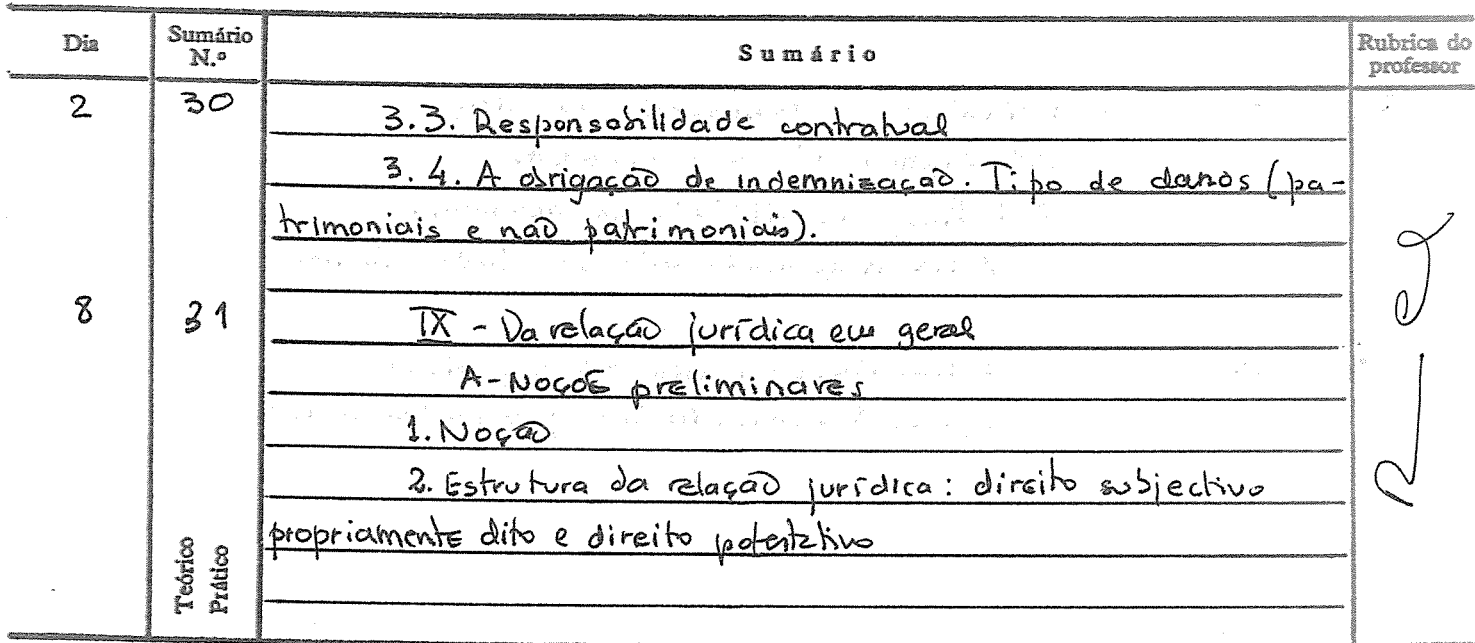 Dia Sumário N.º Sumário Rubrica do professor
2 30 3.3. Responsabilidade contratual
3.4. A obrigação de indemnização. Tipo de danos (pa-
trimoniais e não patrimoniais).
8 31 IX - Da relação jurídica em geral
A - Noções preliminares
1. Noção
2. Estrutura da relação jurídica: direito subjectivo
propriamente dito e direito potestativo
Teórico
Prático